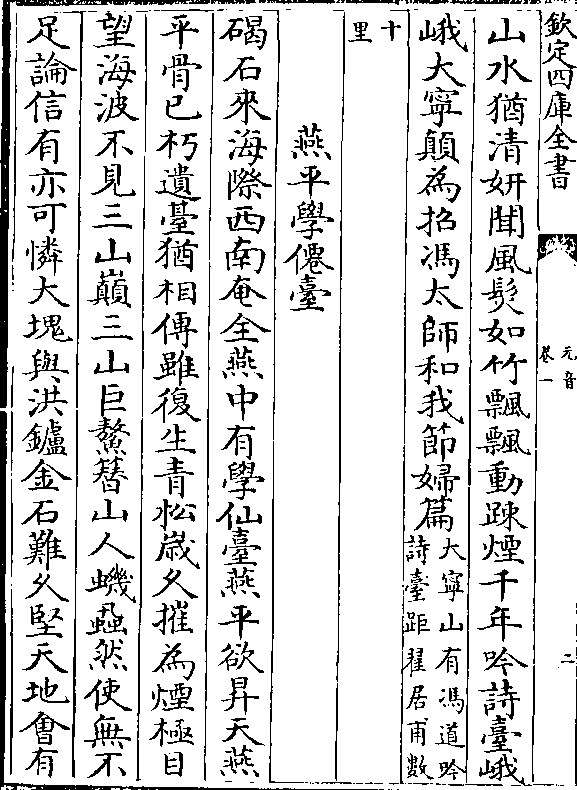 欽定四庫全書
元音
卷一
二
山水猶清妍聞風髮如竹飄飄動疎煙千年吟詩臺峨
峨大寧顛為招馮太師和我節婦篇大寧山有馮道吟
詩臺距翟居甫數
十
里
燕平學僊臺
碣石來海際西南奄全燕中有學仙臺燕平欲昇天燕
平骨已朽遺臺猶相傳雖復生青松歲久摧為煙極目
望海波不見三山巔三山巨鰲簪山人蟣蝨然使無不
足論信有亦可憐大塊與洪鑪金石難久堅天地會有